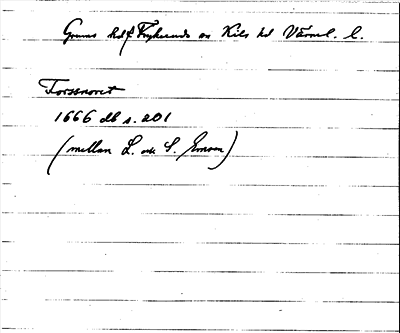 Grums hd f Fryksände o Kils hd Värml. l.
Forssnoret
1666 db s. 201
(mellan L. och S. Emsen)